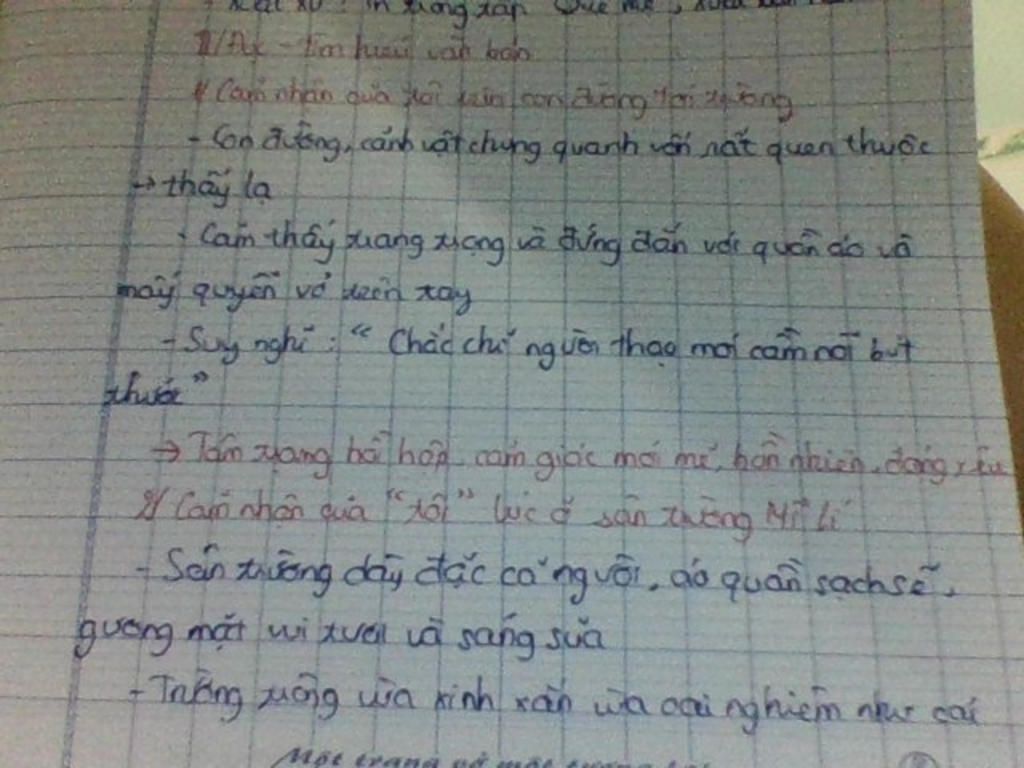 - Xuất xứ: in trong tập Quê mẹ, xuất bản
II/ Đọc - tìm hiểu văn bản
1/ Cảm nhận của tôi trên con đường tới trường
- Con đường, cảnh vật chung quanh vốn rất quen thuộc
→ thấy lạ
- Cảm thấy trang trọng và đứng đắn với quần áo và
mấy quyển vở trên tay
- Suy nghĩ: "Chắc chỉ người thạo mới cầm nổi bút
thước"
→ Tâm trạng hồi hộp, cảm giác mới mẻ, hồn nhiên, đáng yêu
2/ Cảm nhận của "tôi" lúc ở sân trường Mĩ Lí
- Sân trường dày đặc cả người, áo quần sạch sẽ,
gương mặt vui tươi và sáng sủa
- Trường trông vừa xinh xắn vừa oai nghiêm như cái